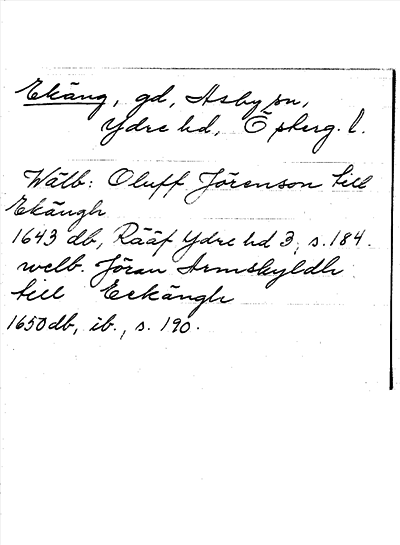 Ekäng, gd, Asby sn,
Ydre hd, Ö sterg. l.
Wälb: Oluff Jörenson till
Ekängh
1643 db, Rääf Ydre hd 3, s. 184.
welb. Jöran Armskyldh
till Eekängh
1650 db, ib., s. 190.